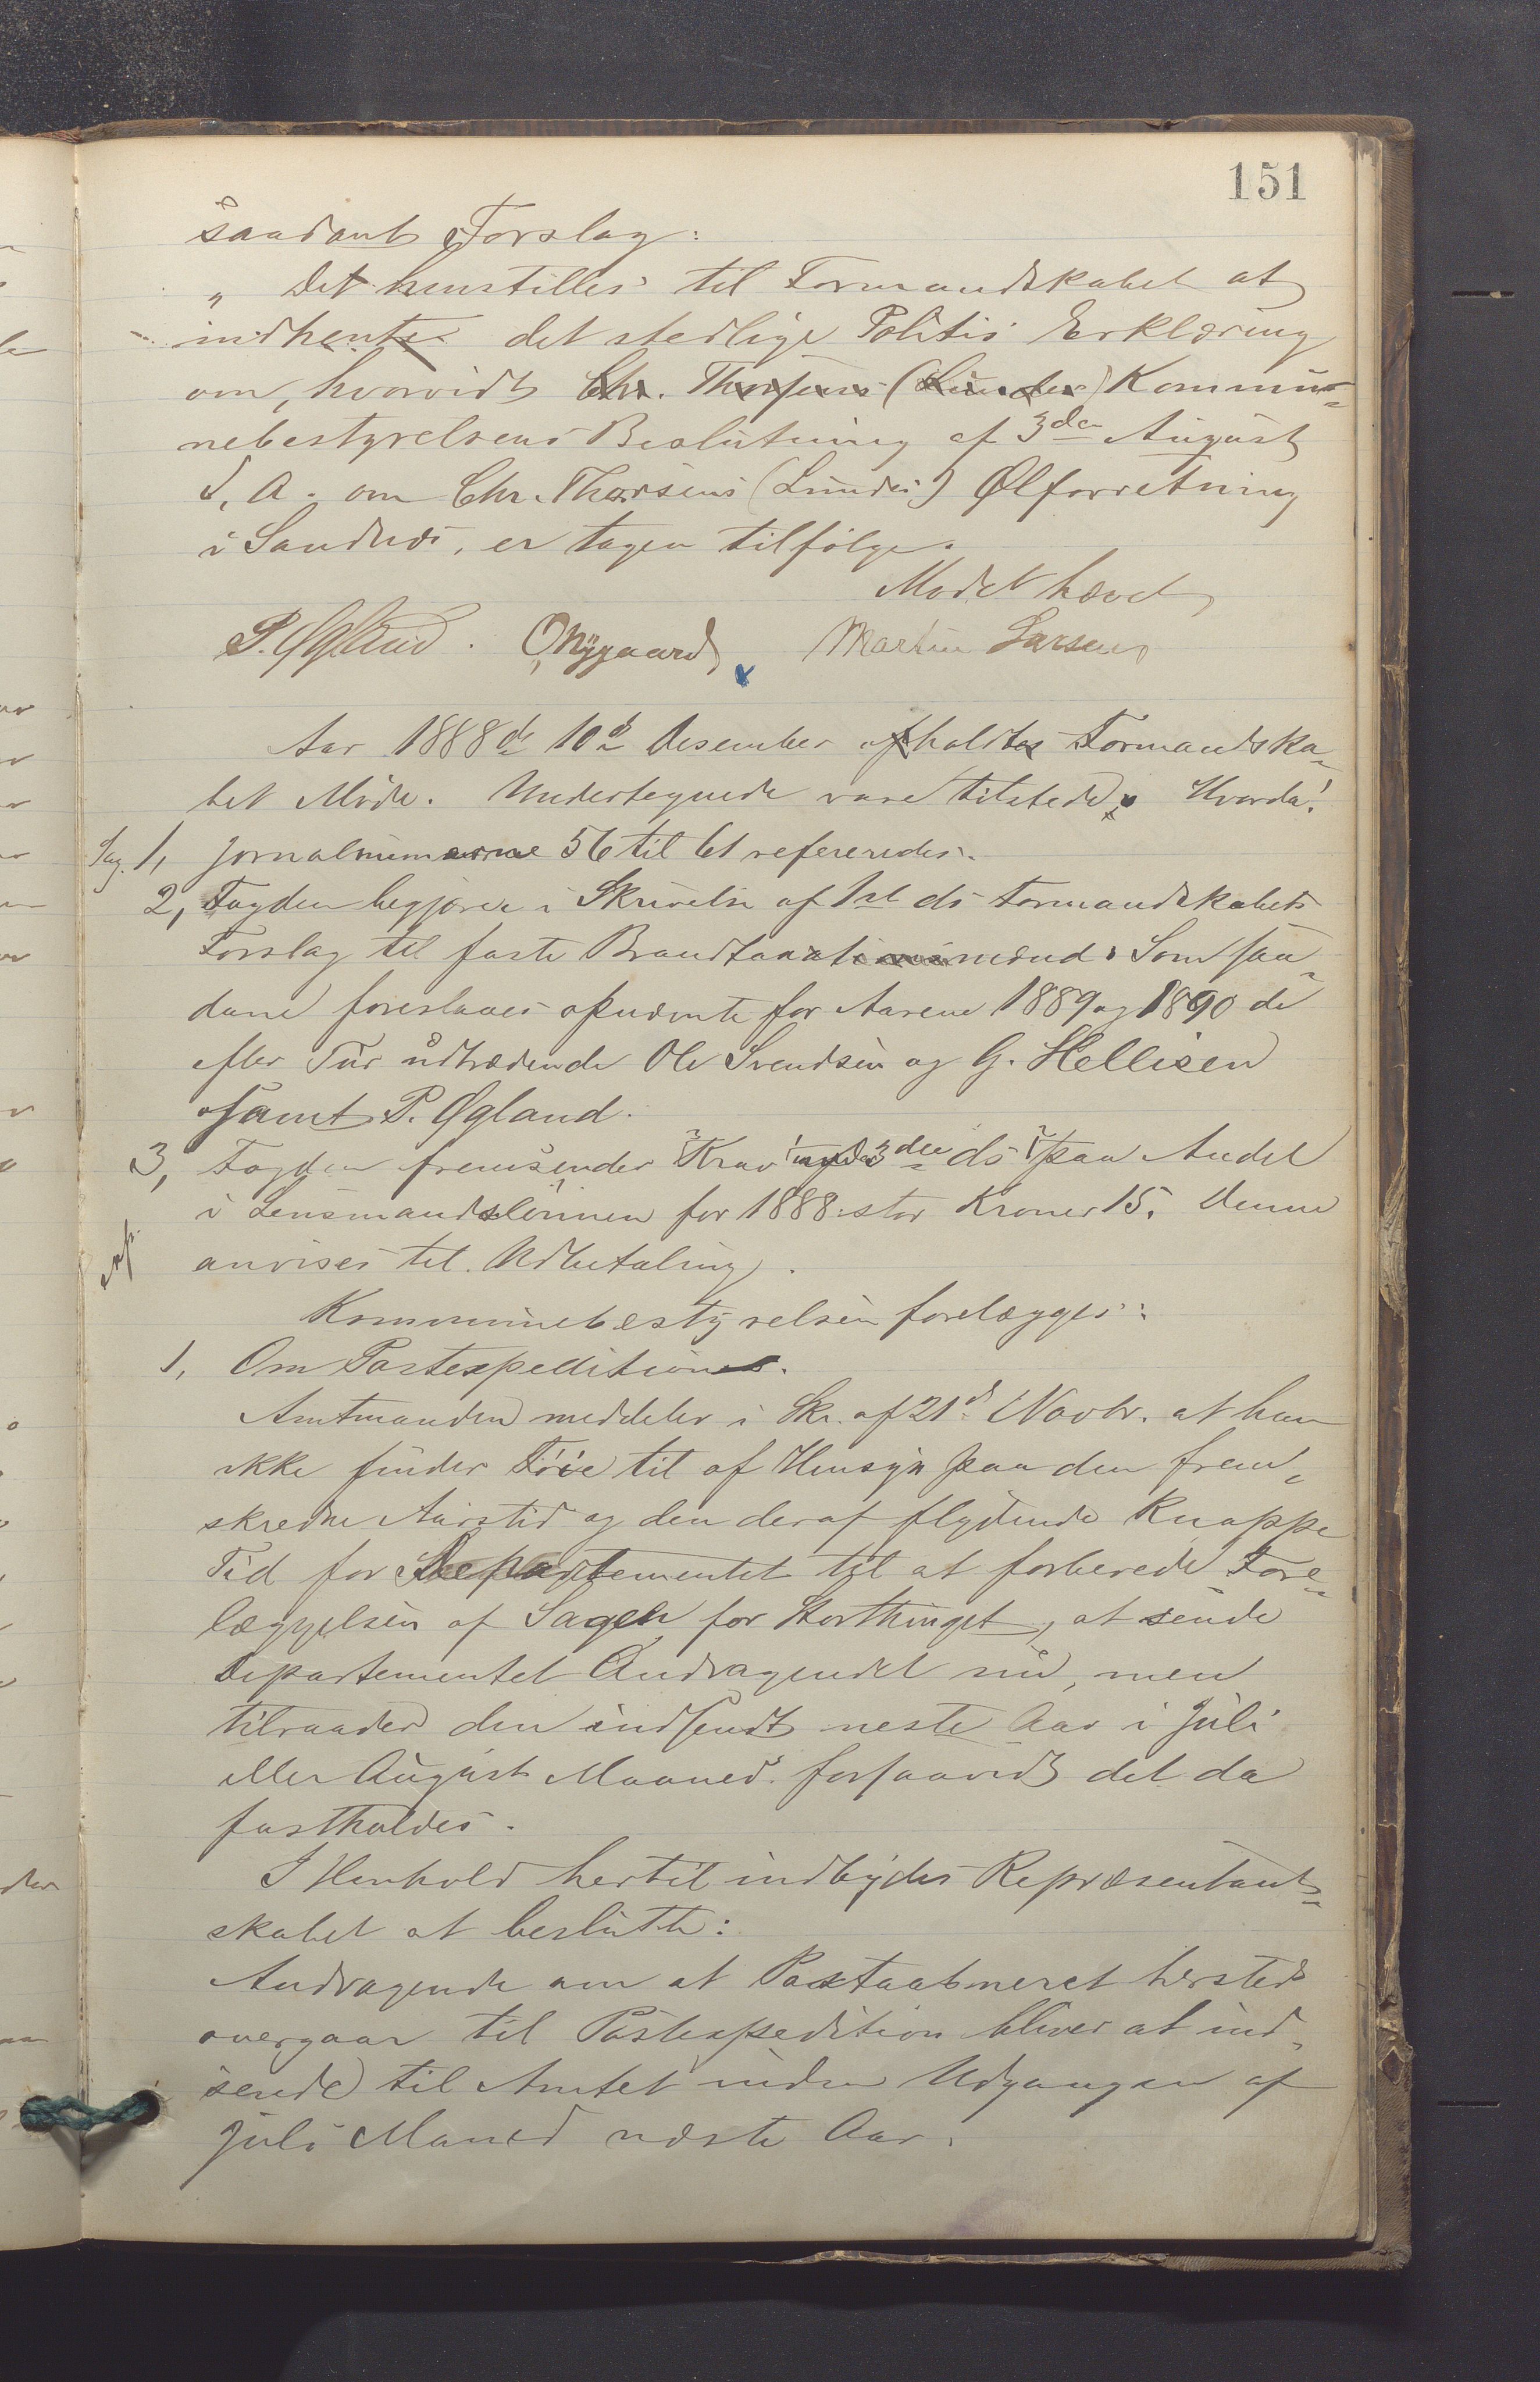 151
saadant Forslag:
„ Det henstilles til Formandskabet at
indhente det stedlige Politis Erklæring
om, hvorvidt Chr. Thorsens (Lundes) Kommu-
nebestyrelsens Beslutning af 3den August
d. A. om Chr. Thorsens (Lundes) Ølforretning
i Sandnes, er tagen tilfølge.
Mødet hævet
P. Øgland. O Nygaard, Martin Larsen
Aar 1888 de 10de Desember afholdtes Formandska-
bet Møde. Undertegnede vare tilstede. Hvorda!
Sag. 1, Jornalnumerne 56 til 61 refereredes.
2, Fogden begjærer i Skrivelse af 1st ds Formandskabets
Forslag til faste Brandtaxationsmænd. Som saa-
dane foreslaaes opnævnte for Aarene 1889 og 1890 de
efter Tur udtrædende Ole Svendsen og G. Hellisen
samt P. Øgland.
3, Fogden fremsender Krav 3die ds paa Andel
i Lensmandslønnen for 1888 stor Kroner 15. Denne
anvises til Udbetaling.
Kommunebestyrelsen forelægges:
1, Om Postexpedition.
Amtmanden meddeler i Skr. af 21d Novbr. at han
ikke finder Føie til af Hensyn paa den frem-
skredne Aarstid og den deraf flydende Knappe
Tid for Departementet til at forberede Fore-
læggelsen af Sagen for Storthinget, at sende
Departementet Andragendet nu, men
tilraader den indsendt neste Aar i Juli
eller August Maaned forsaavidt det da
fastholdes.
I Henhold hertil indbydes Repræsentant-
skabet at beslutte:
Andragende om at Postaabneriet hersteds
overgaar til Postexpedition bliver at ind-
sende til Amtet inden Udgangen af
Juli Maned næste Aar.